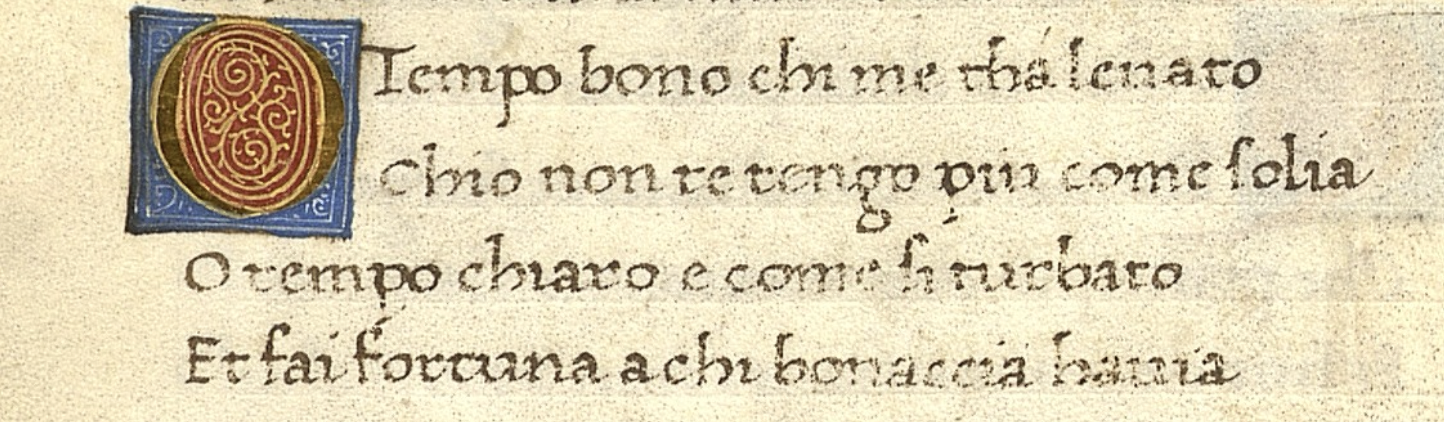 O Tempo bono chi me tha leuato
Chio non te tengo piu come solia
O tempo chiaro e come si turbato
Et fai fortuna a chi bonaccia hauia